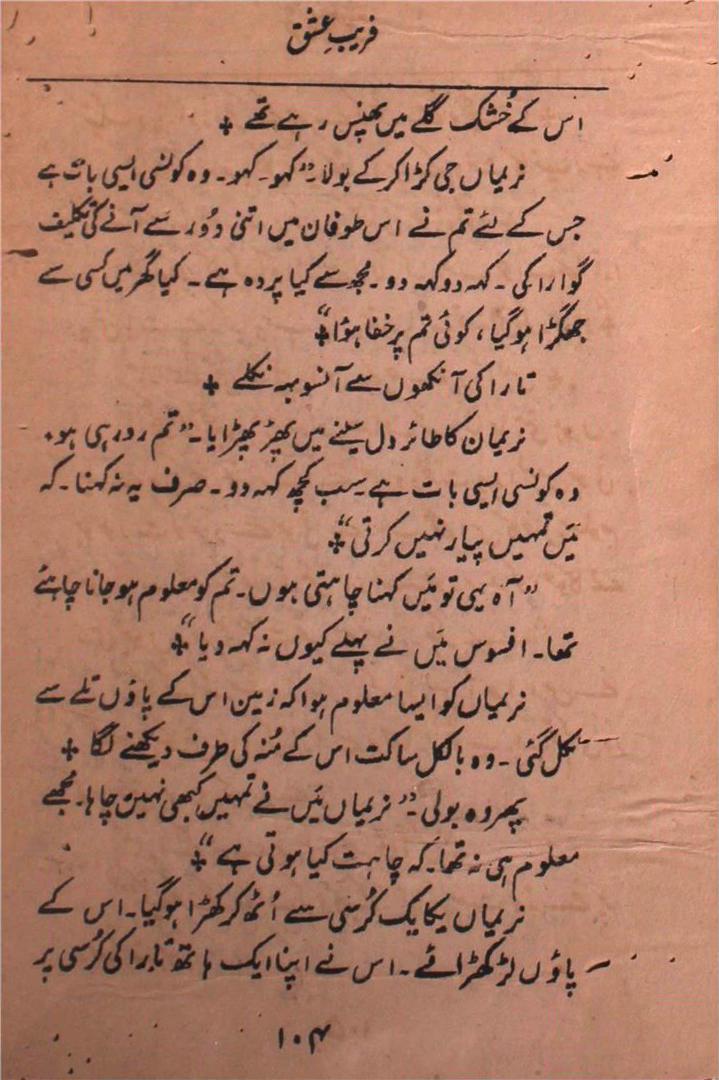 فریبِ عشق
اس کے خُشک گلے میں پھنس رہے تھے ÷
نریماں جی کڑا کر کے بولا۔ "کہو۔ کہو۔ وہ کونسی ایسی بات ہے
جس کے لئے تم نے اس طوفان میں اتنی دُور سے آنے کی تکلیف
گوارا کی۔ کہہ دو کہہ دو۔ مجھ سے کیا پردہ ہے۔ کیا گھر میں کسی سے
جھگڑا ہوگیا، کوئی تم پر خفا ہؤا" ÷
تارا کی آنکھوں سے آنسو بہہ نکلے ÷
نریمان کا طائر دل سینے میں پھڑپھڑایا۔ "تم رو رہی ہو۔
وہ کونسی ایسی بات ہے۔ سب کچھ کہہ دو۔ صرف یہ نہ کہنا۔ کہ
مَیں تمہیں پیار نہیں کرتی" ÷
"آہ یہی تو مَیں کہنا چاہتی ہوں۔ تم کو معلوم ہو جانا چاہئے
تھا۔ افسوس مَیں نے پہلے کیوں نہ کہہ دیا" ÷
نریماں کو ایسا معلوم ہوا کہ زمین اس کے پاؤں تلے سے
نکل گئی۔ وہ بالکل ساکت اس کے مُنہ کی طرف دیکھنے لگا ÷
پھر وہ بولی۔ "نریماں مَیں نے تمہیں کبھی نہیں چاہا۔ مجھے
معلوم ہی نہ تھا۔ کہ چاہت کیا ہوتی ہے" ÷
نریماں یکایک کُرسی سے اُٹھ کر کھڑا ہوگیا۔ اس کے
پاؤں لڑکھڑائے۔ اس نے اپنا ایک ہاتھ تارا کی کُرسی پر
۱۰۴